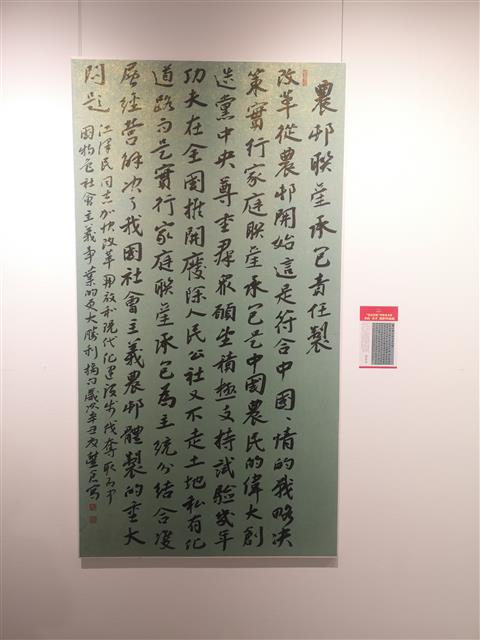 農邨聯產承包責任製
改革從農邨開始這是符合中國、情的戰略决
策實行家庭聯產承包是中國農民的偉大創
造黨中央尊重群眾願望積極支持試驗幾年
功夫在全國推開廢除人民公社又不走土地私有化
道路而是實行家庭聯產承包為主統分結合雙
層經營解决了我國社會主義農邨體製的重大
問題
江澤民同志加快改革開放和現代化建設步伐奪取有中
國特色社會主義事業的更大勝利 摘句歲次辛丑